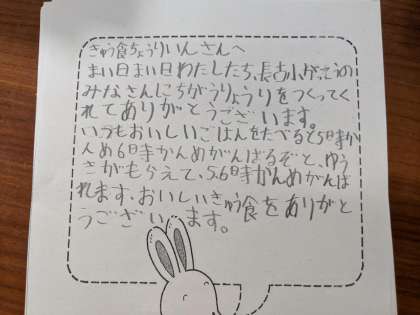 きゅう食ちょうりいんさんへ
まい日まい日わたしたち、長吉小がっこうの
みなさんにちがうりょうりをつくってく
れてありがとうございます。
いつもおいしいごはんをたべると5時か
んめ6時かんめがんばるぞと、ゆう
きがもらえて、5、6時かんめがんば
れます、おいしいきゅう食をありがと
うございます。